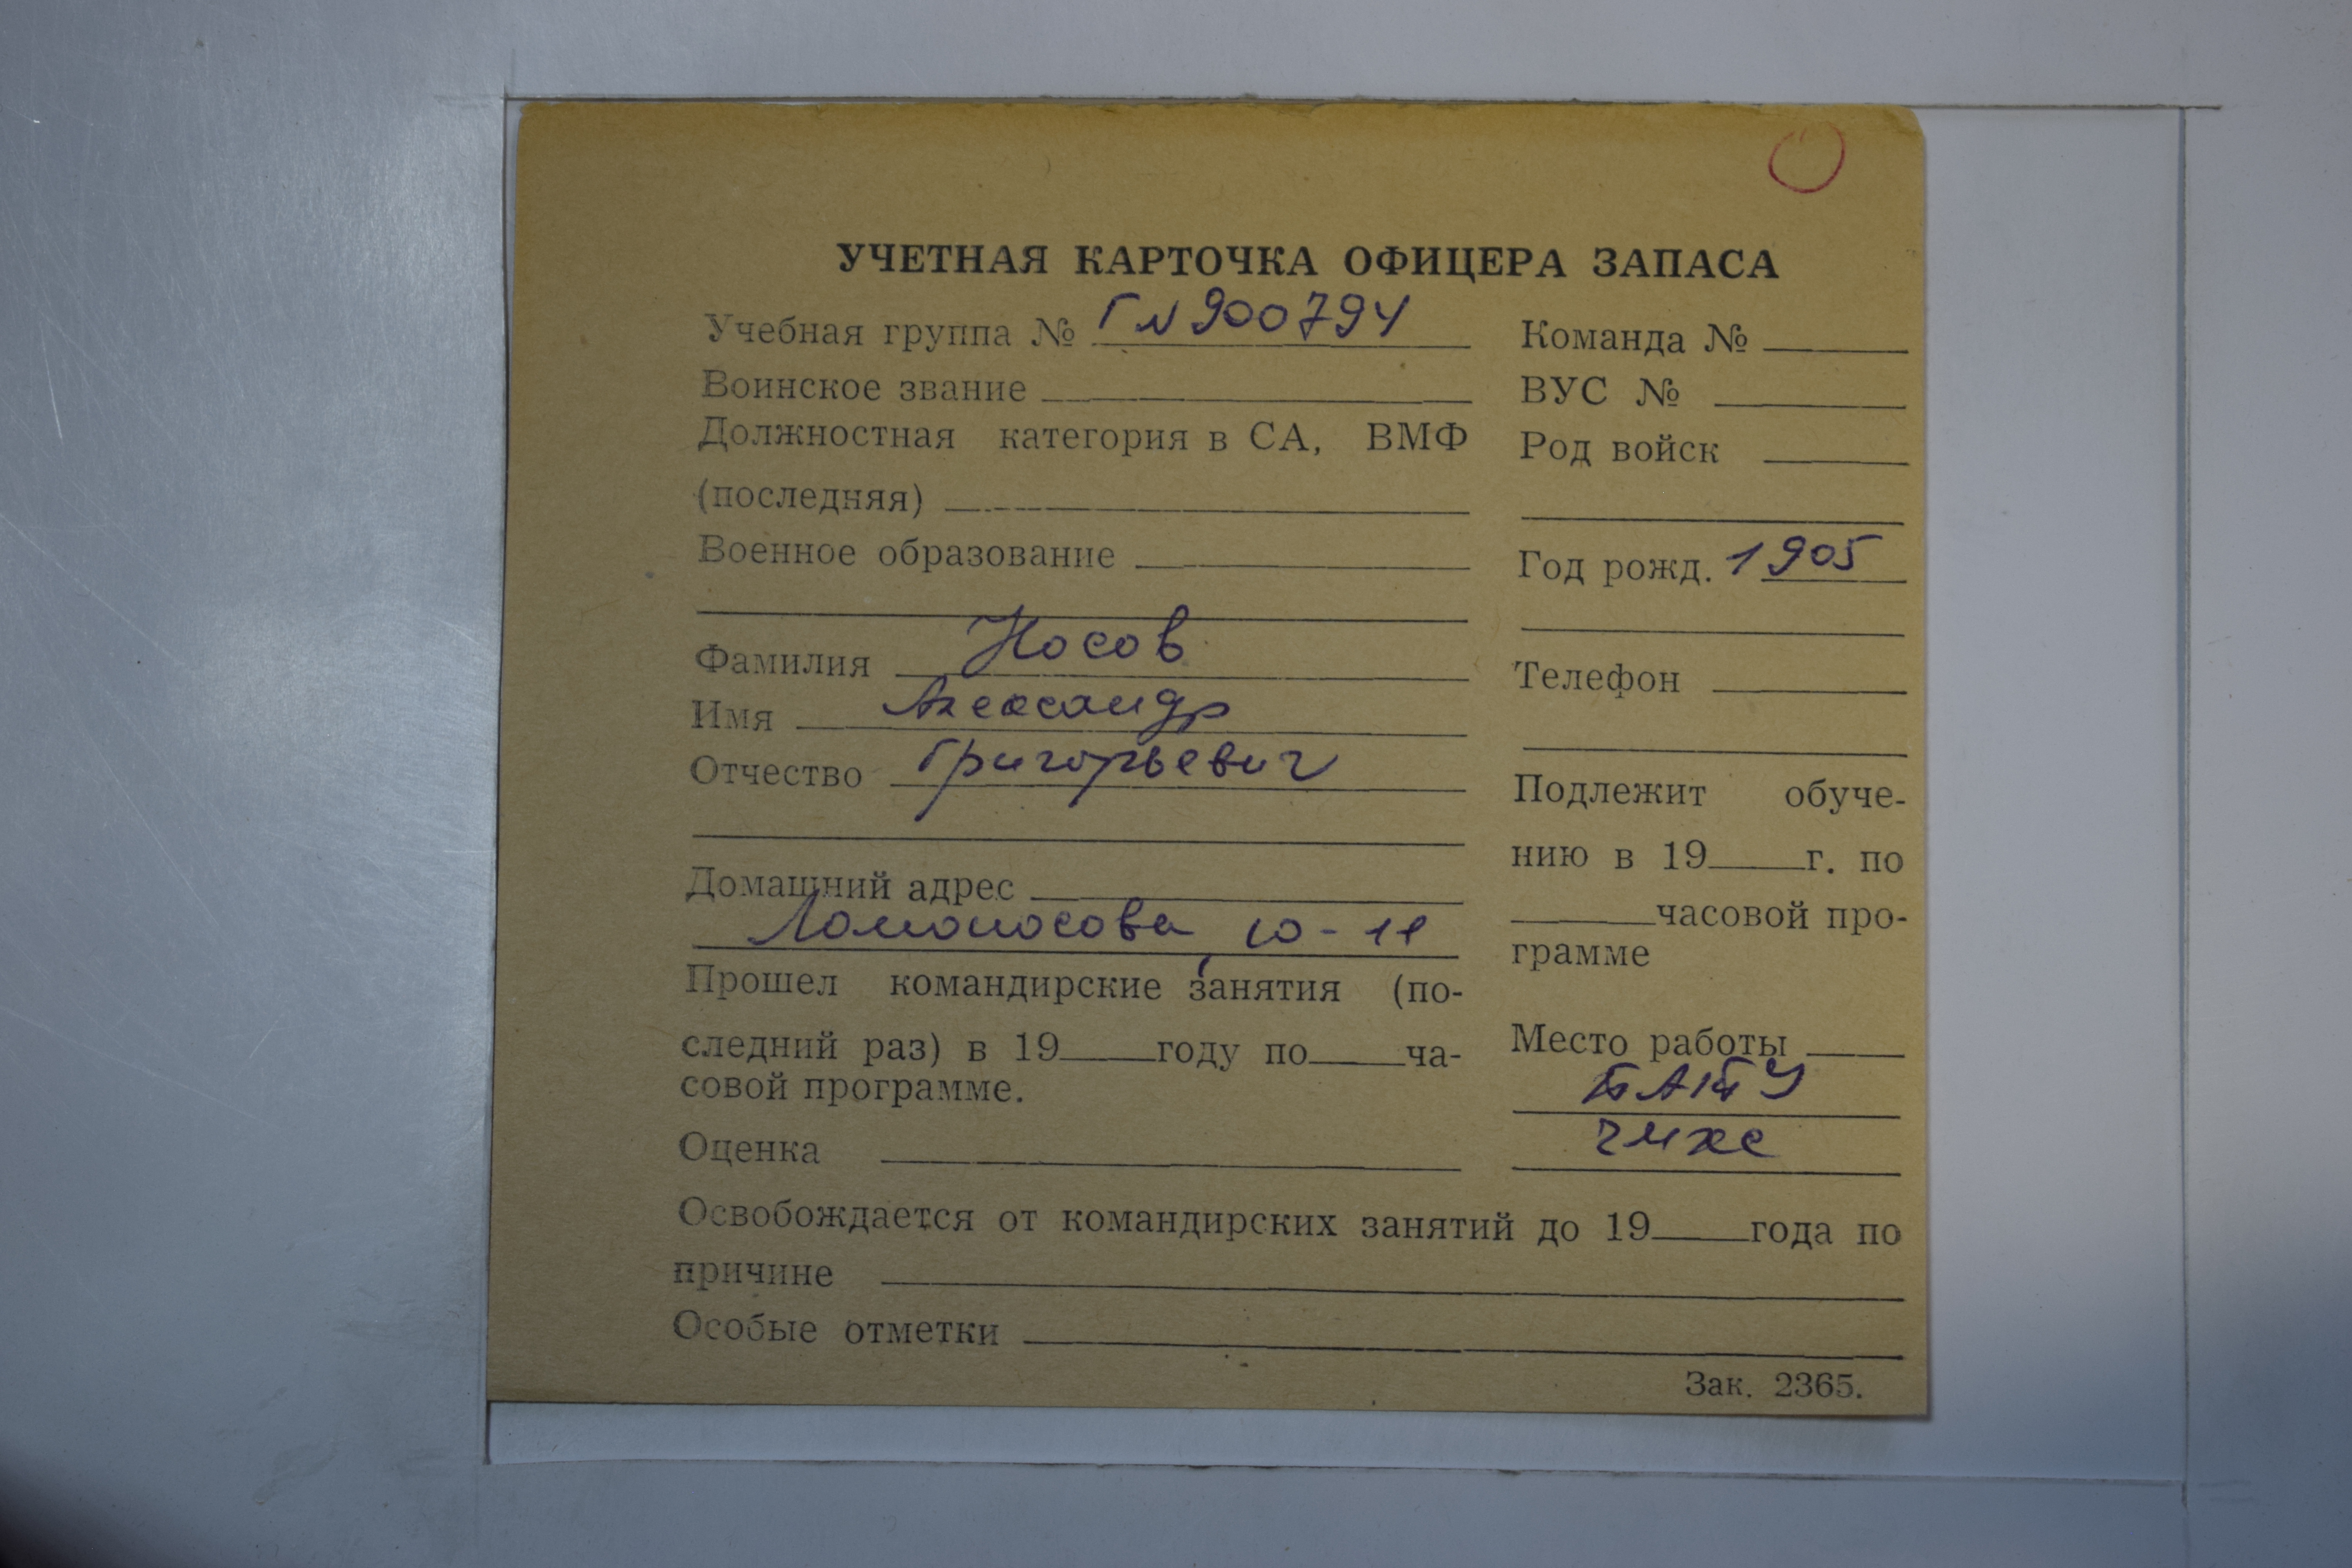 УЧЕТНАЯ КАРТОЧКА ОФИЦЕРА ЗАПАСА
Учебная группа № ГN 900794
Воинское звание
Должностная категория в СА, ВМФ
(последняя)
Военное образование
Фамилия Носов
Имя Александр
Отчество Григорьевич
Домашний адрес
Ломоносова, 10-11
Прошел командирские занятия (по-
следний раз) в 19 году по ча-
совой программе.
Оценка
Команда №
ВУС №
Род войск
Год рожд. 1905
Телефон
Подлежит обуче-
нию в 19 г. по
часовой про-
грамме
Место работы
Освобождается от командирских занятий до 19 года по
причине
Особые отметки
Зак. 2365.